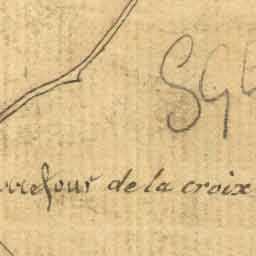 SG
rrefour de la croix